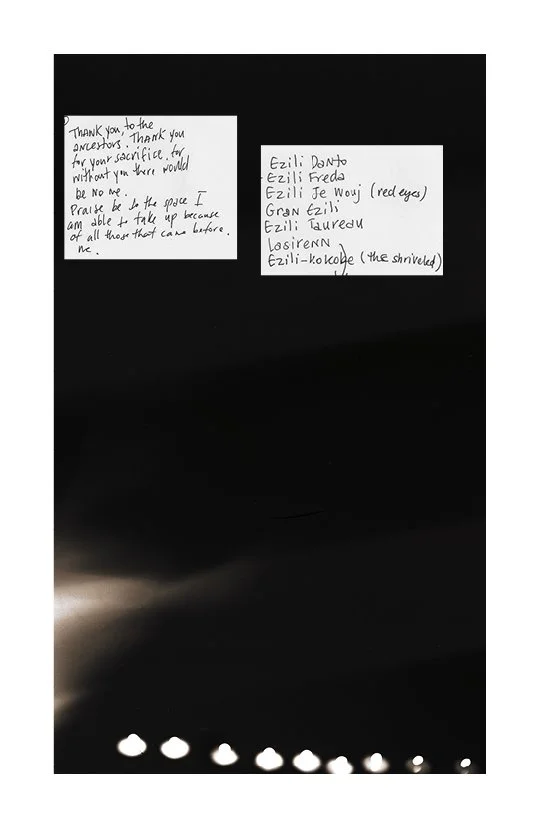 THANK you, to the
ancestors. THANK you
for your sacrifice, for
without you there would
be no me.
Praise be to the space I
am able to take up because
of all those that came before.
me.
Ezili Danto
Ezili Freda
Ezili Je Wouj (red eyes)
Gran Ezili
Ezili Taureau
Lasirenn
Ezili-kokobe (the shriveled)